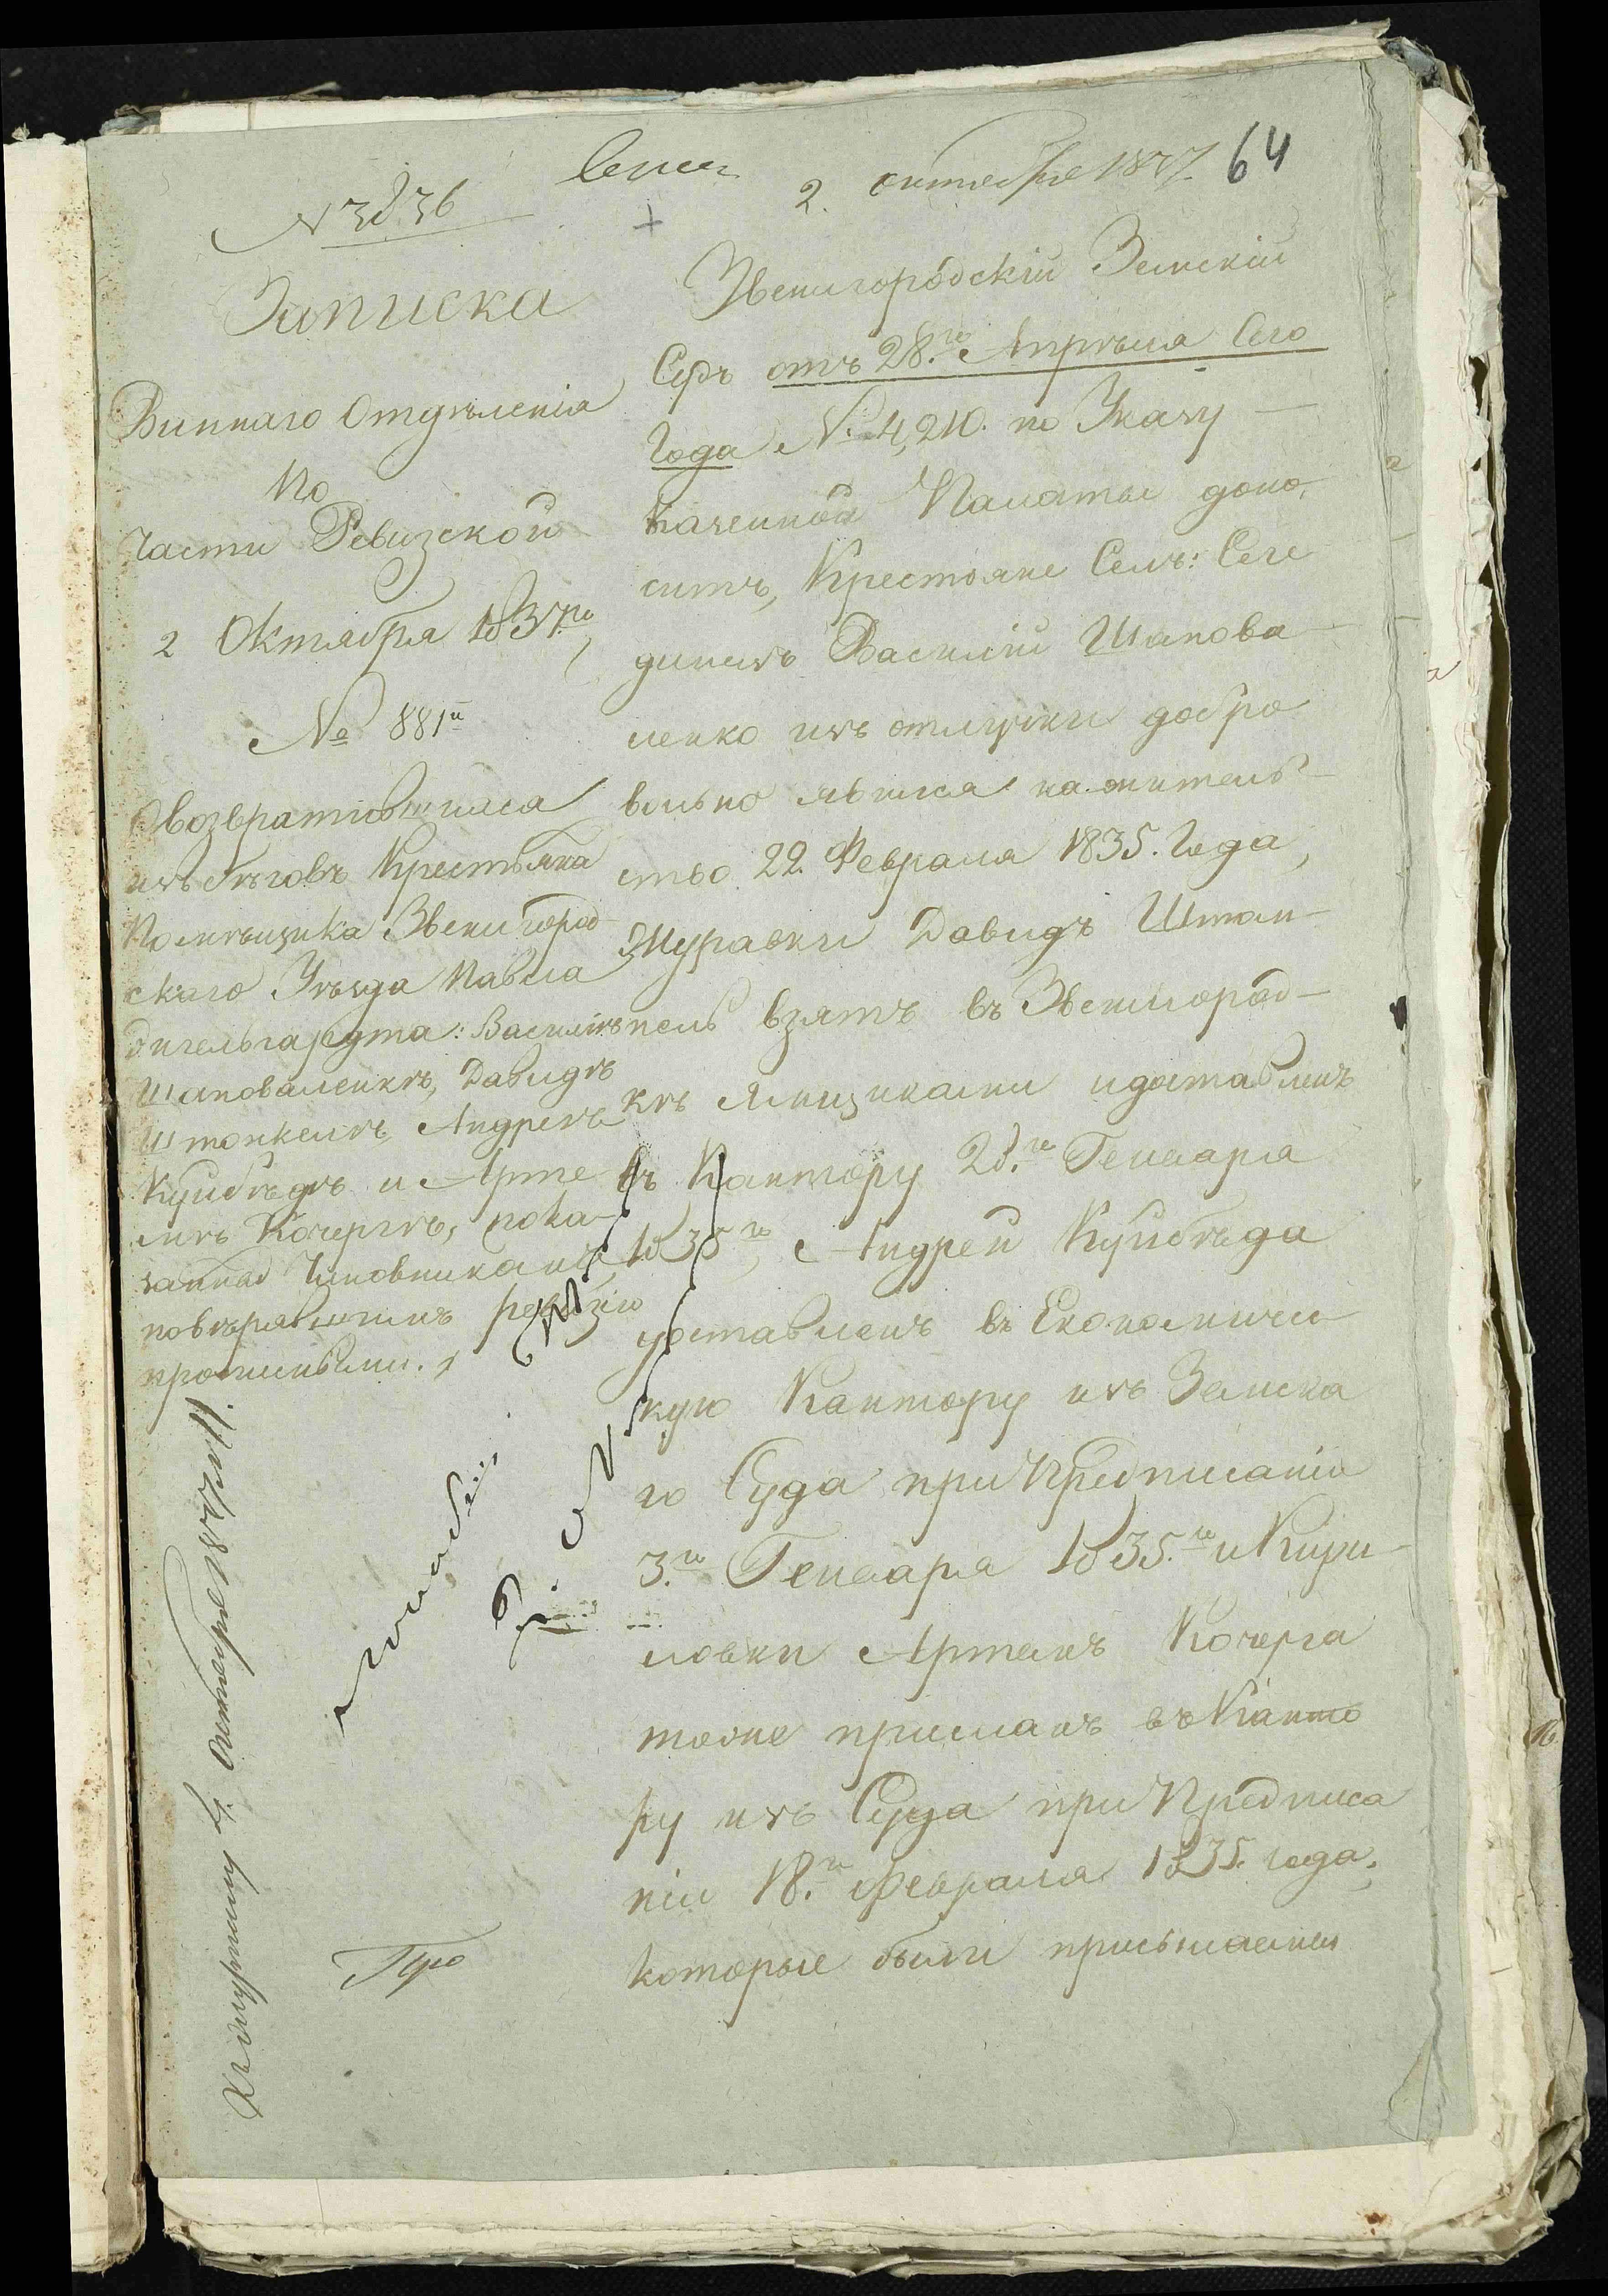 64
2. октября 1837
№ 3836
Записка
Виннаго Отделенія
По
Части Ревизской
2 Октября 1837го
№ 881й
О возвратившихся
изъ бѣговъ Крестьяна
Помѣщика Звенигород-
скаго Уѣзда Павла
Энгельгардта: Василiѣ
Шаповаленкѣ, Давидѣ
Штопкелѣ, Андреѣ
Куйбѣдѣ и Арте-
мѣ Кочергѣ, пока-
занныхъ Чиновниками
повѣрявшими ревизію
прописными.
Звенигородскій Земскій
Судъ отъ 28го Апрѣля Сего
Года № 4,210. по Указу
Казенной Палаты доно-
ситъ, Крестьяне Селъ: Сеге
динецъ Василій Шапова-
ленко изъ отлучки добро
вольно явился на житель-
ство 22. Февраля 1835. Года,
Журавки Давидъ Штан-
пель взятъ въ Звенигород-
кѣ Ямщиками и доставленъ
въ Кантору 28.го Генваря
1835го, Андрей Куйбѣда
доставленъ въ Економичес
кую Кантору изъ Земска
го Суда при Предписаніи
3.го Генваря 1835.го и Кири-
ловки Артемъ Кочерга
тоже присланъ въ Канто
ру изъ Суда при Предписа
ніи 18.го Февраля 1835. года,
которые были присылаемы